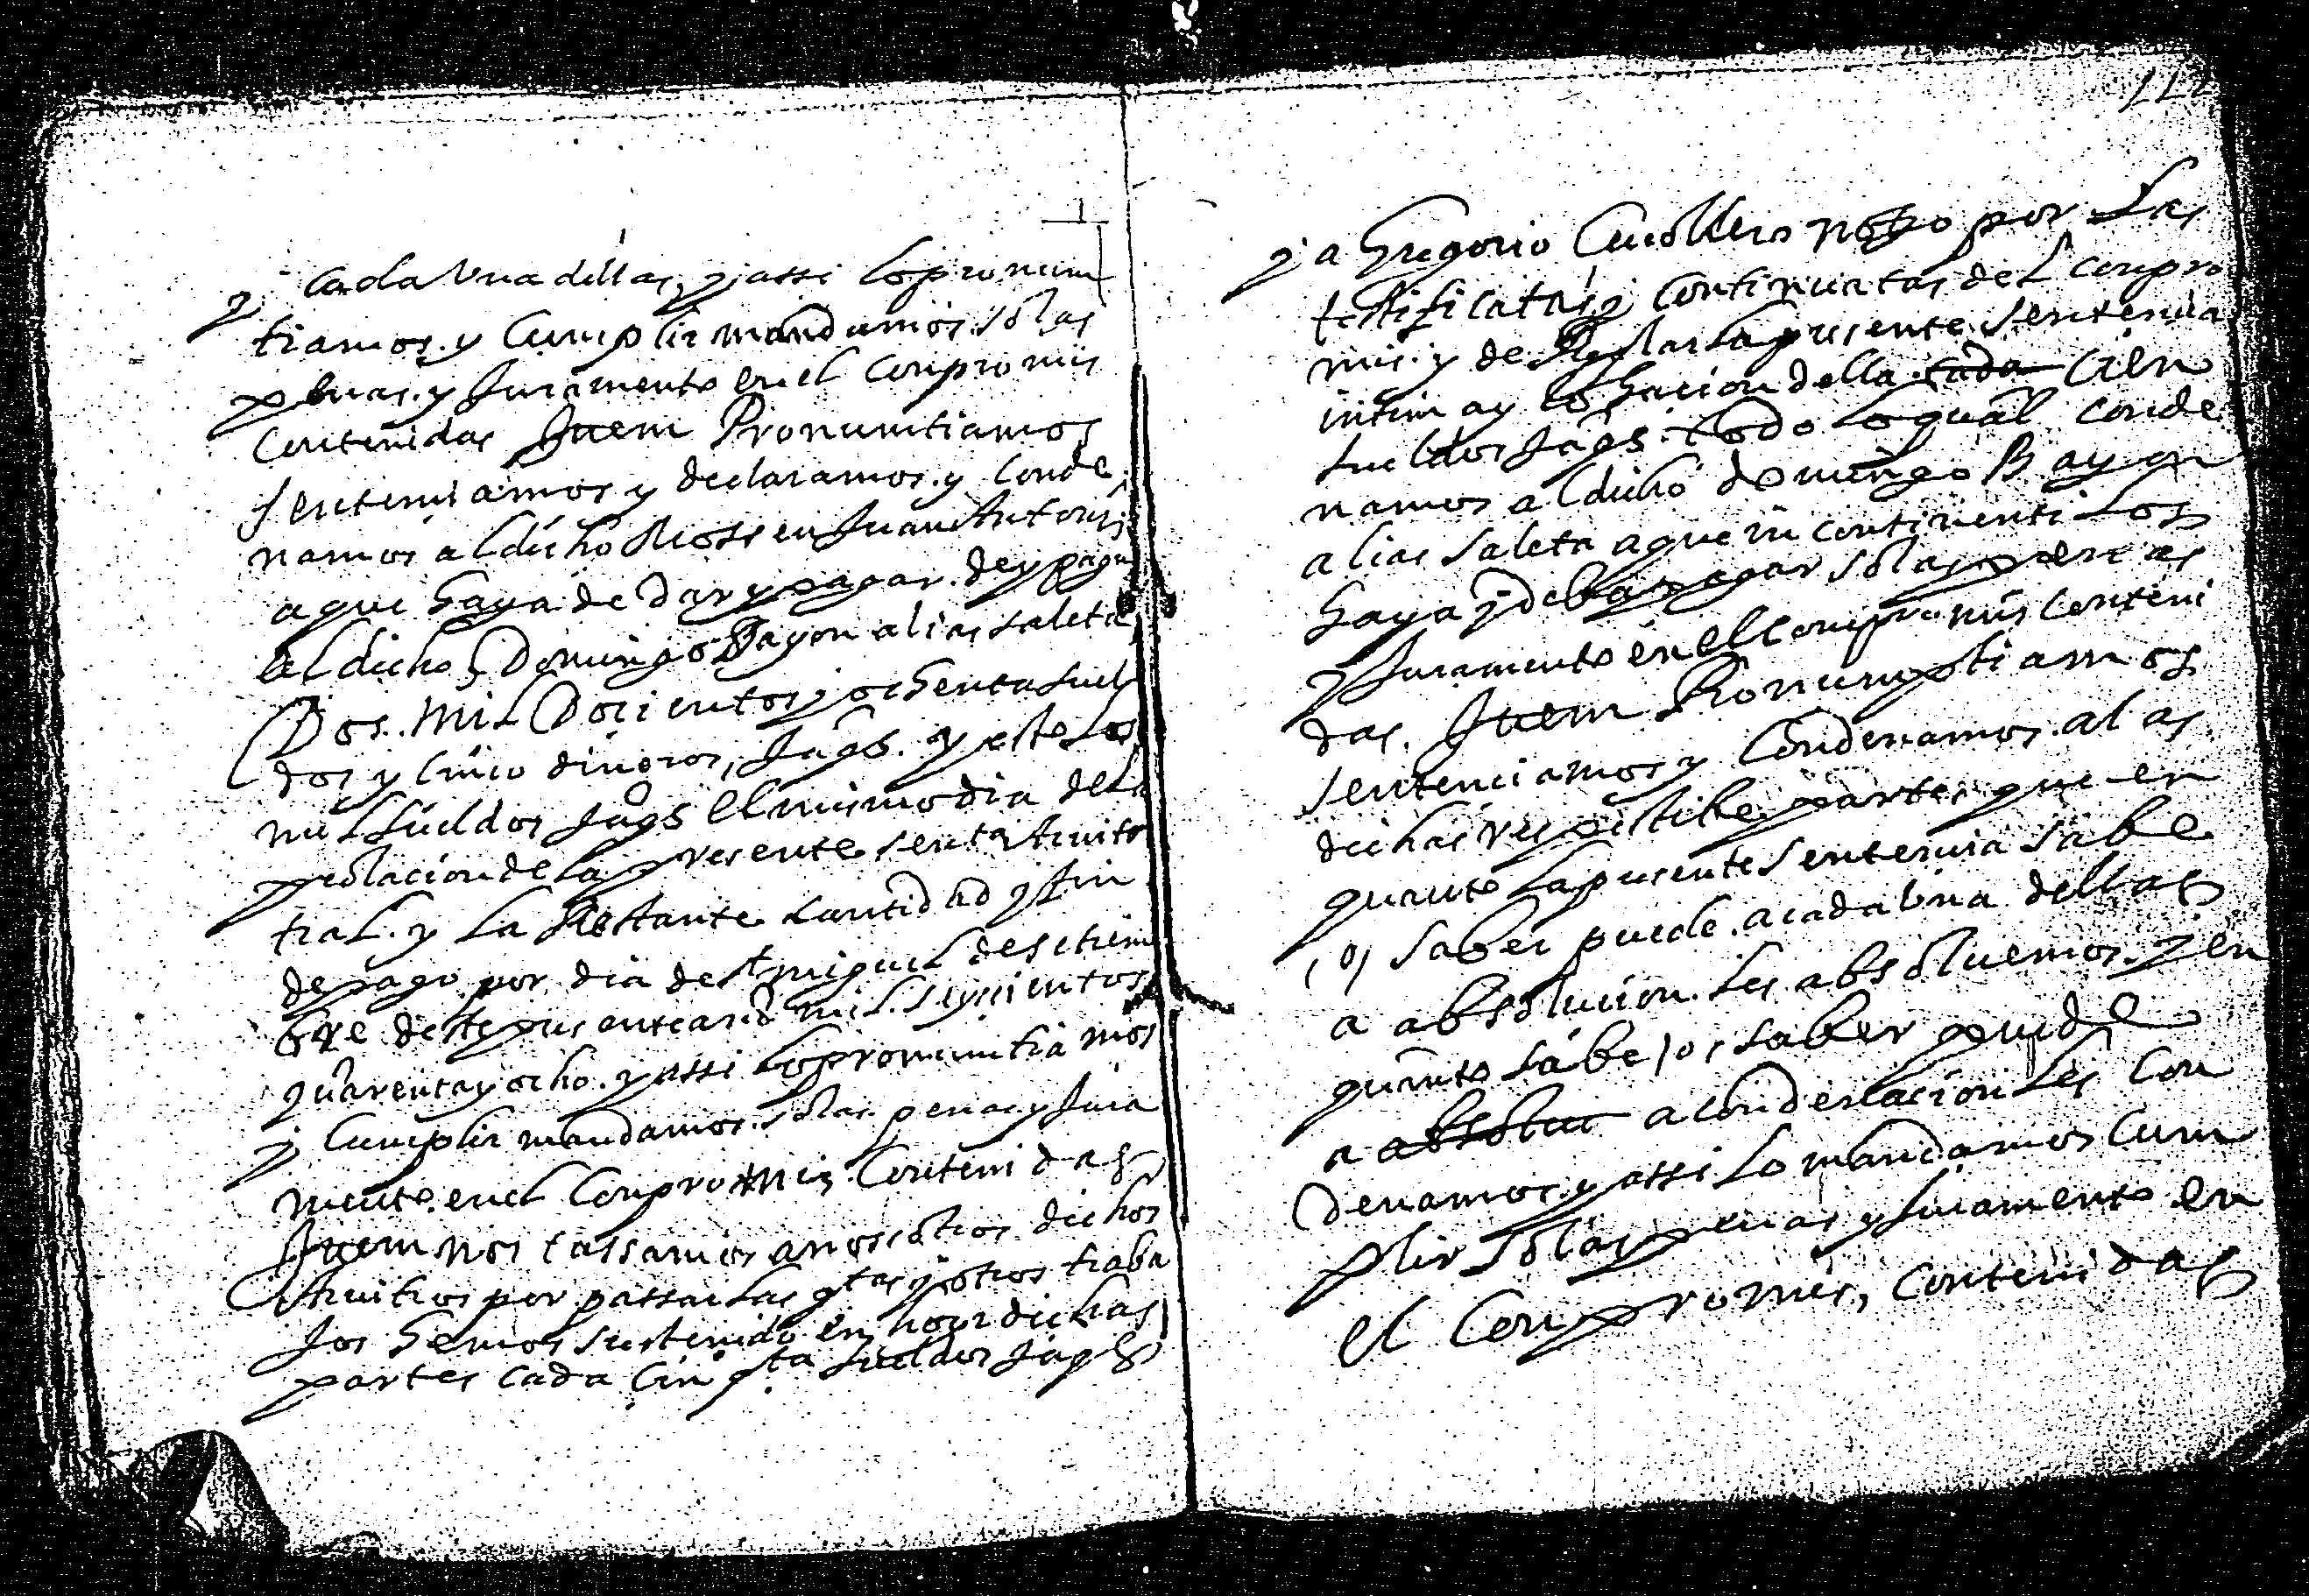 y cada Vna dellas, y assi lo pronum
tiamos. y Cumplir mandamos. so las
penas. y Juramento en el Conpromis
Contenidas Ittem Pronuntiamos
sentenciamos y declaramos. y Conde
namos al dicho Mossen Juan Antoni
a que haya de Dar y pagar. de y pague
al dicho Domingo Bayon alias saleta
Dos. Mil Docientos y ochenta suel
dos y Cinco dineros, Jaqs. y este los
mil sueldos Jaqs el mismo dia dela
prolacion de la presente senta Arvitr
tral. y La Restante cantidad y fin
de pago por dia de st miguel de setiem
bre deste presente año mil. seyscientos
quarenta y ocho. y assi lo pronuntiamos
y Cumplir mandamos. so las penas y Jura
mento. en el Conpromis. Contenidas
Ittem nos tassamos a nosotros dichos
Arvitros por passar las qtas y otros traba
jos hemos sustenido en dichas
partes cada Cinqta sueldos Jaqs
112
y a Gregorio notrio por Las
testificatas y Continuatas del Conpro
mis. y de Reglar la presente. sentencia
intima y lohacion della cada Cien
sueldos Jaqs. todo lo qual conde
namos al dicho domingo Bayon
alias saleta a que in continenti Los
haya y deba pagar so las penas
y Juramento en el Conpromis Conteni
das. Ittem Pronumptiamos
sentenciamos y Condenamos. a las
dichas respectibe partes que en
quanto la presente sentencia sabe
(o) saber puede. a cada Vna dellas
a absolucion. les absoluemos. y en
quanto sabe, o, saber puede
a absoluc a condenacion les Con
denamos. y assi lo mandamos Cum
plir so las penas y Juramento en
el Conpromis, contenidas